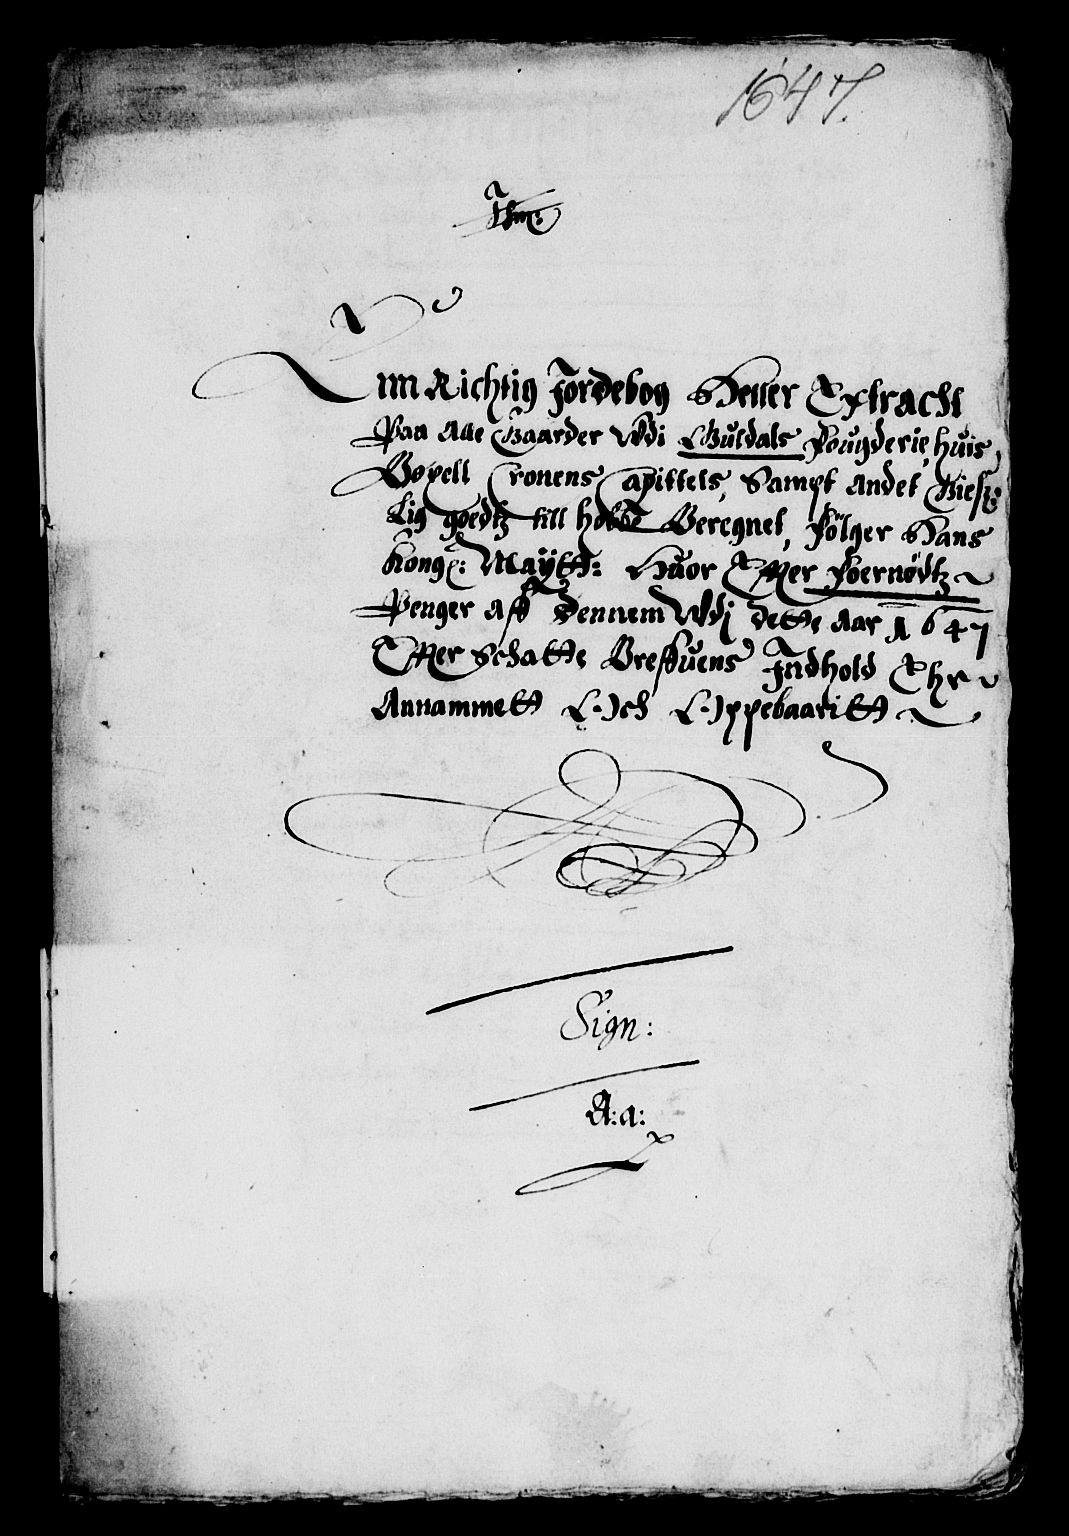 1647.
Enn Richtig Jordebog Heller Extracht
Paa Alle Gaarder Udi Guldals Fougderie, huis
Bopell Cronens Capittels, Sampt Andet Giest:
Lig goedtz till holde Beregnet, Fölger Hans
Kong: Maÿtt: Huor Effter Foernödtz
Penger Aff Dennem Udj dette Aar 1647
Effter Schatte Breffuens Indhold Ehr
Annammett Och Oppebaaritt
Sign:
A:a: